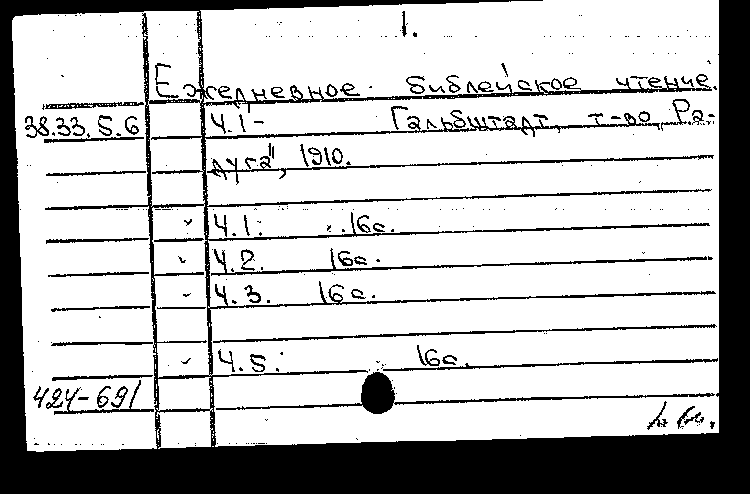 1.
Ежедневное библейское чтение.
38.33.5.6 Ч.1- Гальбштадт, т-во „Ра-
дуга", 1910.
Ч.1: 16с.
Ч.2. 16с.
Ч.3. 16с.
Ч.5: 16с.
424-691